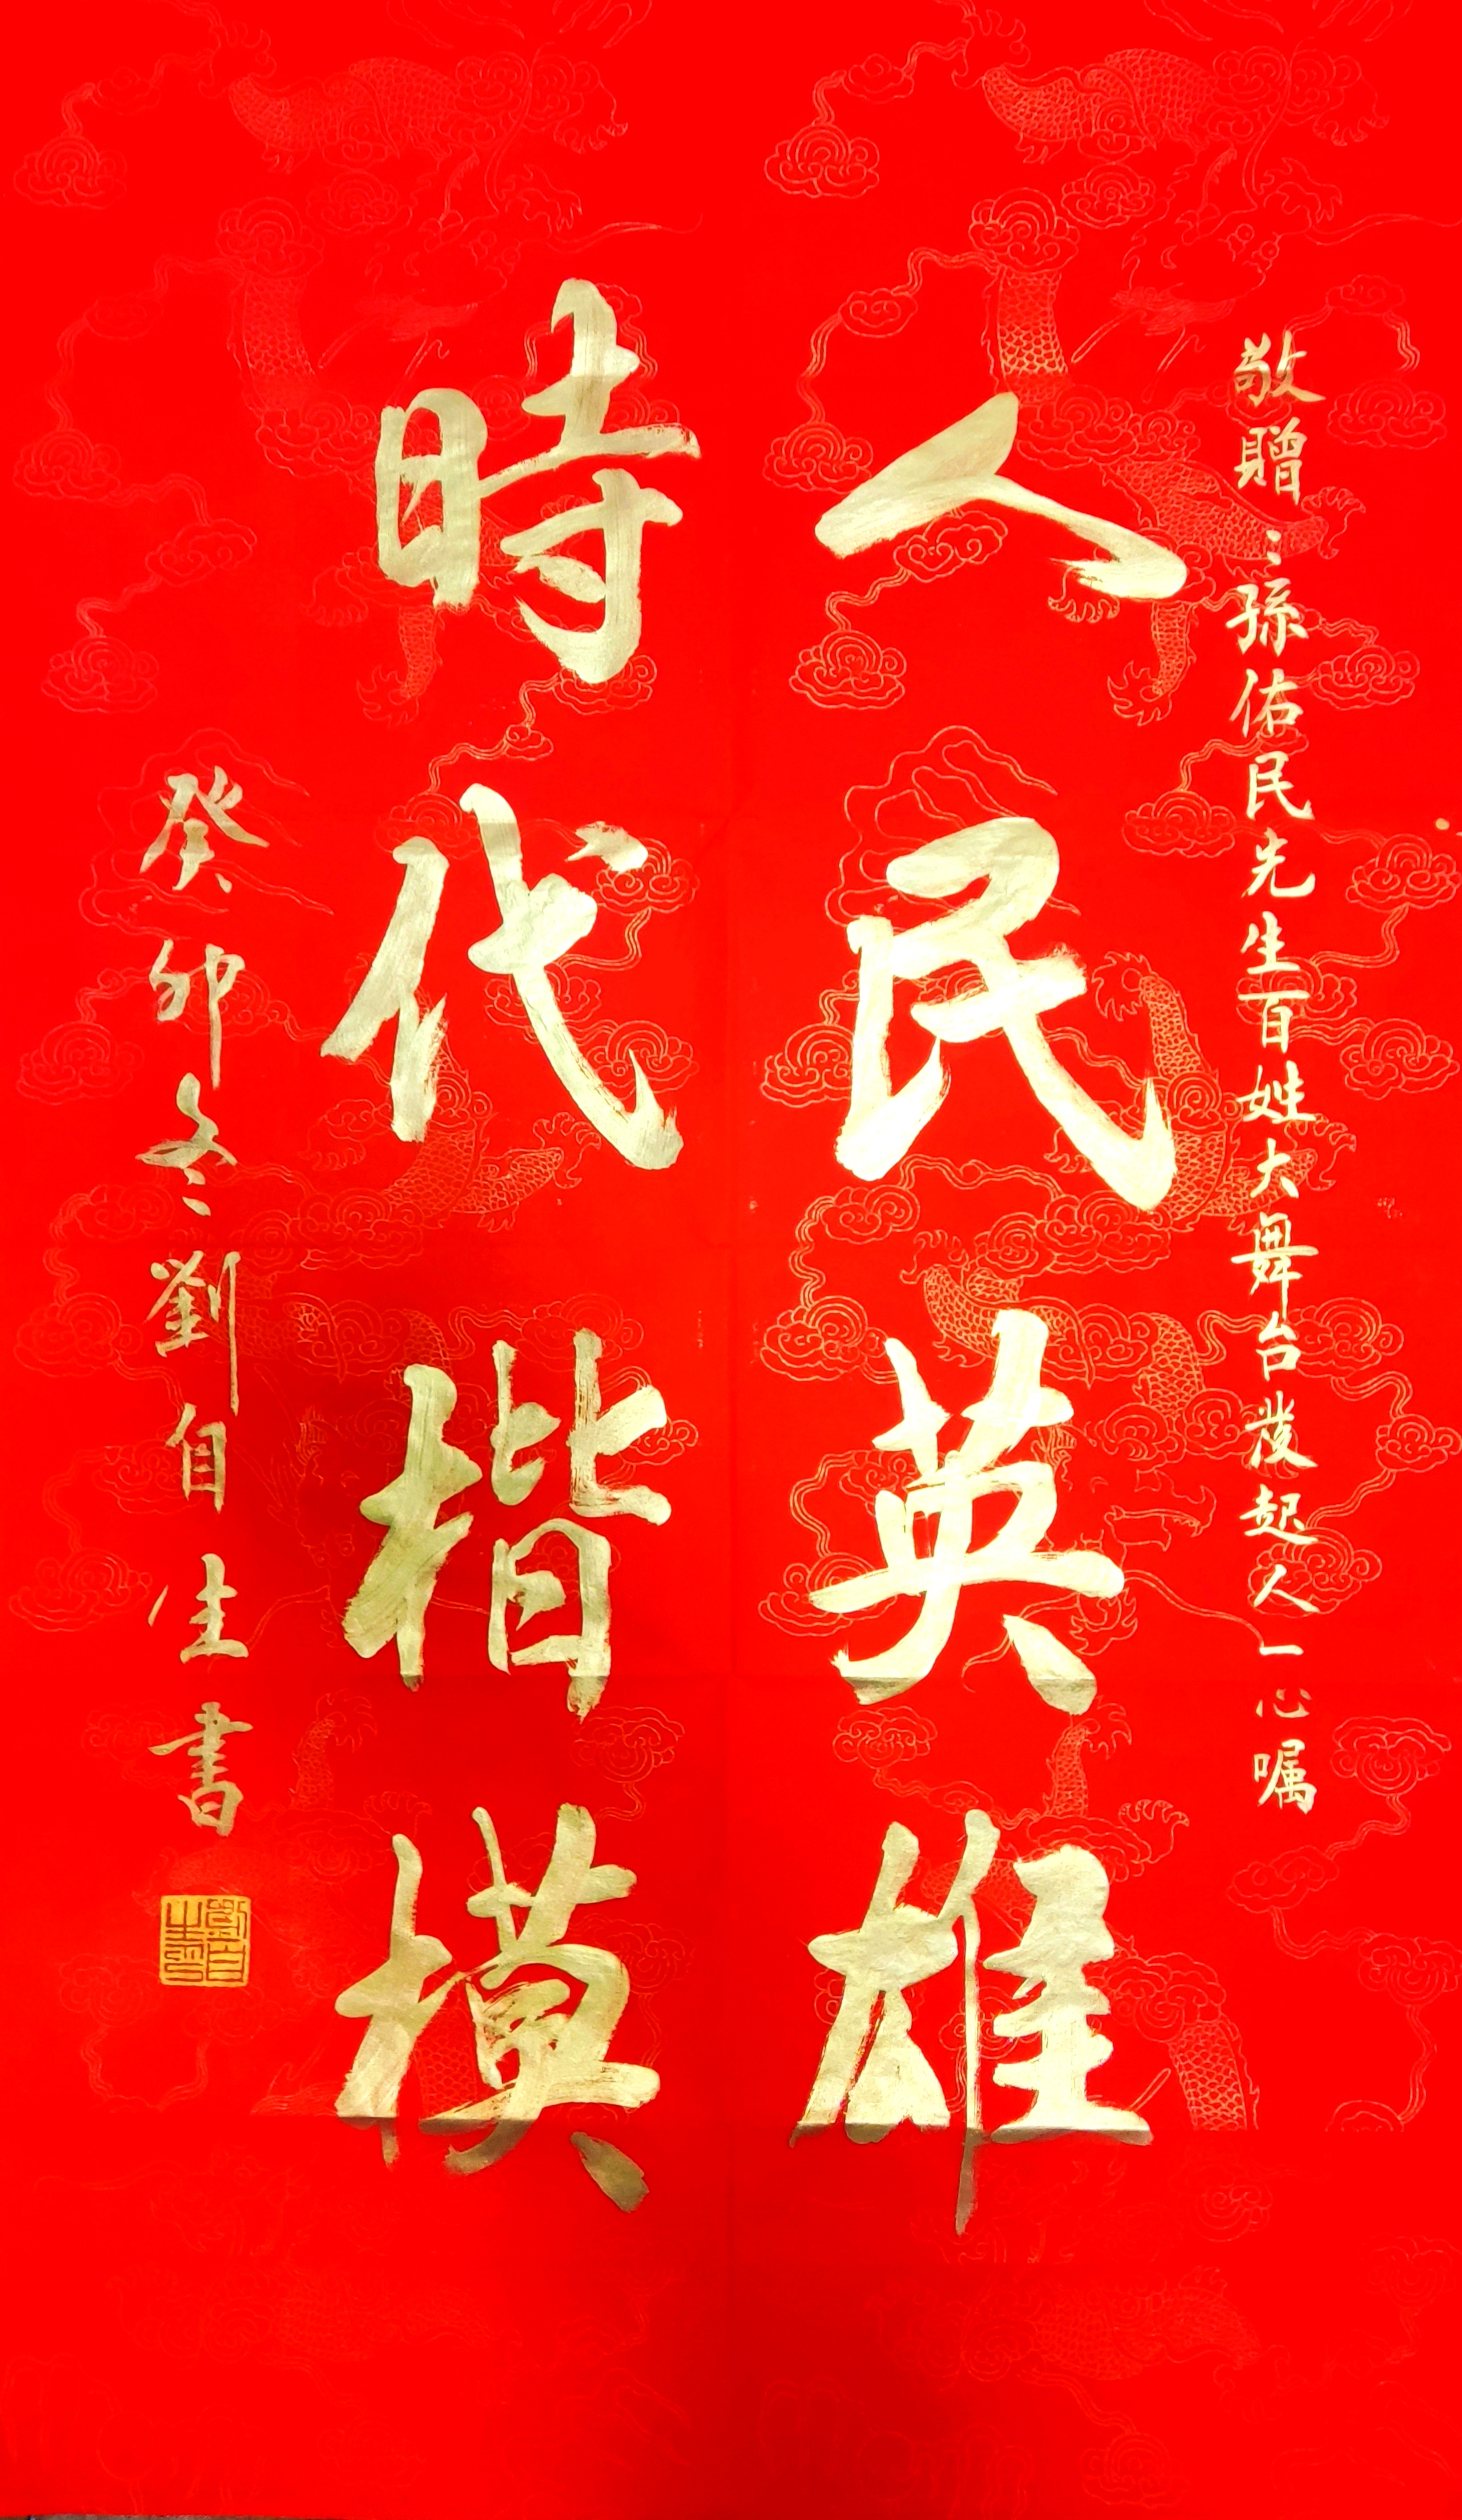 敬贈：孫佑民先生百姓大舞台发起人一心嘱
人民英雄
時代楷模
癸卯冬劉自生書